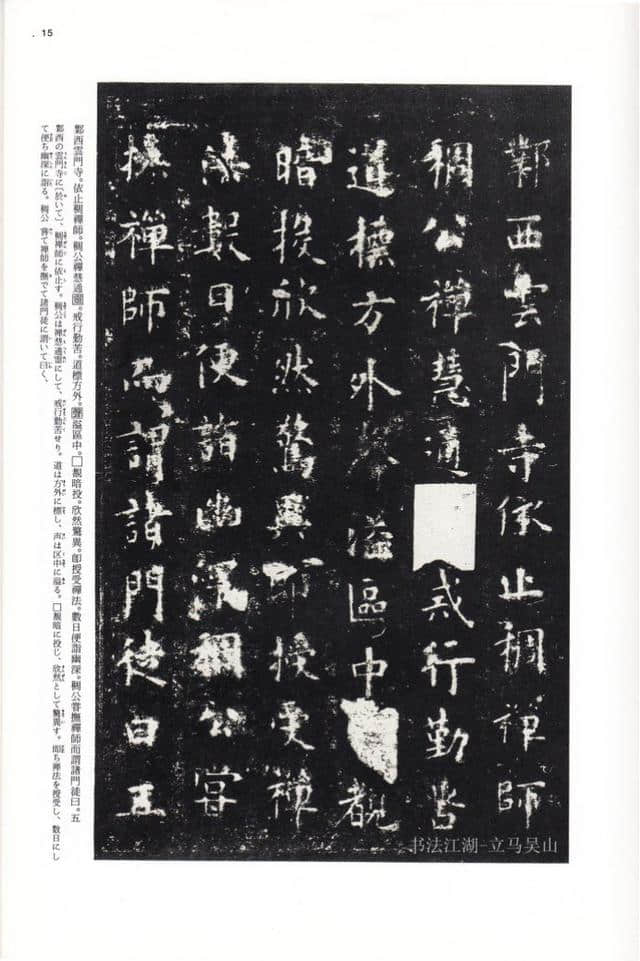 . 15
鄴西雲門寺依止稠禪師
稠公禪慧通戒行勤苦
道標方外聲溢區中覩
暗投欣然驚異即授受禪
法數日便詣幽深稠公嘗
撫禪師而謂諸門徒曰五
鄴西雲門寺。依止稠禪師。稠公禪慧通靈。戒行勤苦。道標方外。聲溢區中。□覩暗投。欣然驚異。即授受禪法。數日便詣幽深。稠公嘗撫禪師而謂諸門徒曰。五
鄴西の雲門寺に〔於いて〕、稠禅師に依止す。稠公は禅慧通靈にして、戒行勤苦せり。道は方外に標し、声は区中に溢る。□覩暗に投じ、欣然として驚異す。即ち禅法を授受し、数日にし
て便ち幽深に詣る。稠公嘗て禅師を撫でて諸門徒に謂いて曰く、
书法江湖-立马吴山